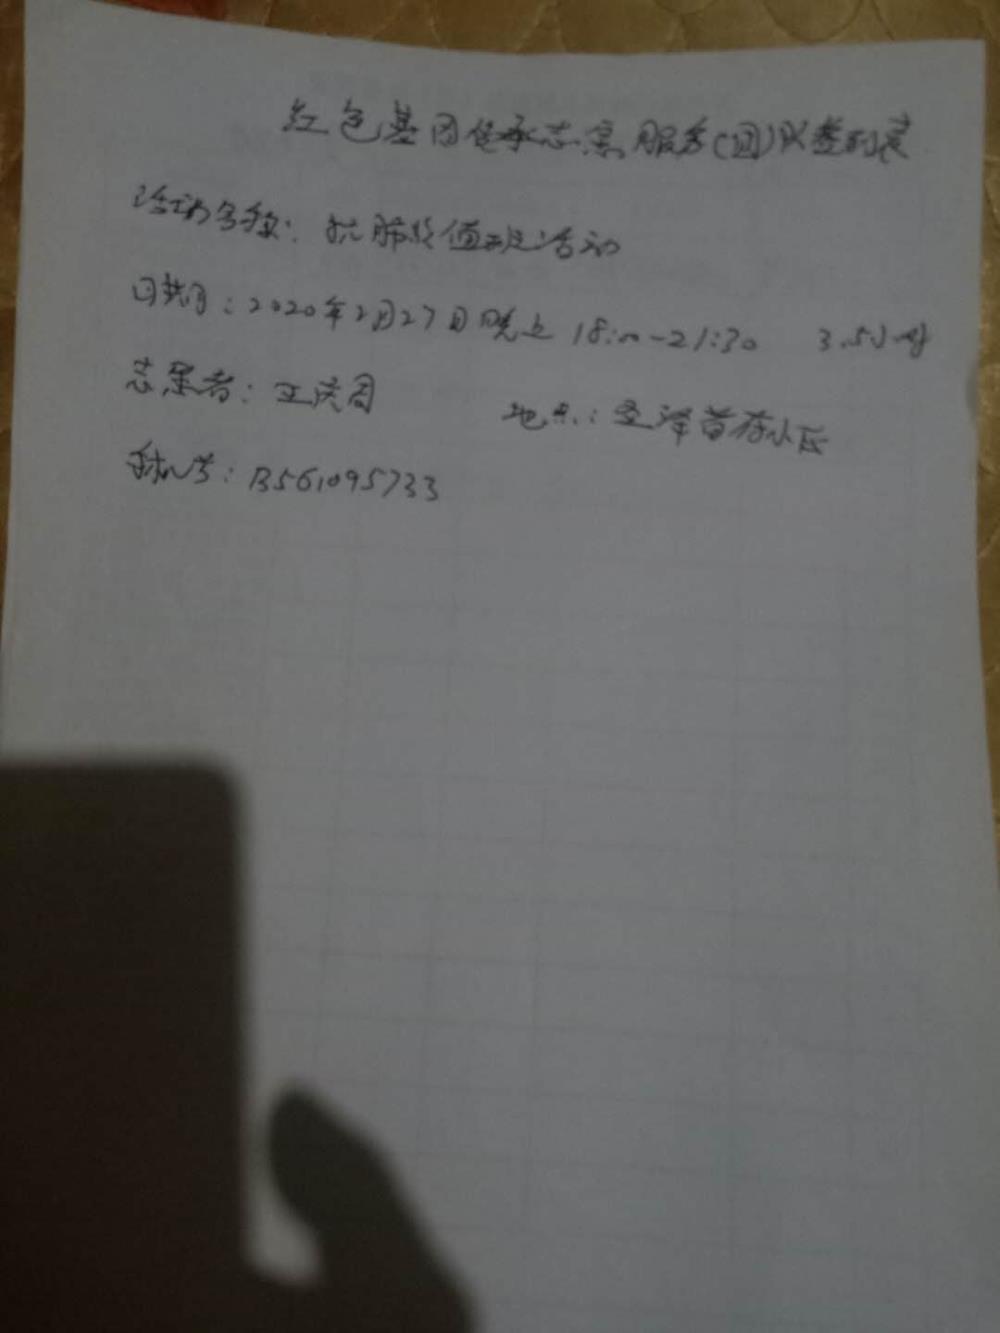 红色基因传承志愿服务(团)队签到表
活动名称：抗肺炎值班活动
日期：2020年2月27日晚上 18:00-21:30 3.5小时
志愿者：王庆周 地点：圣泽首府小区
手机号：13561095733